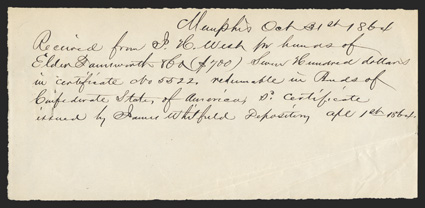 Memphis Oct 31st 1864
Received from J. H. West pr hands of
Elder Farnsworth & Co ($700) Seven Hundred dollars
in certificate No 5522, returnable in Bonds of
Confederate States of America, Sd. Certificate
issued by Francis Whitfield Depositary, Apl 1st 1864.